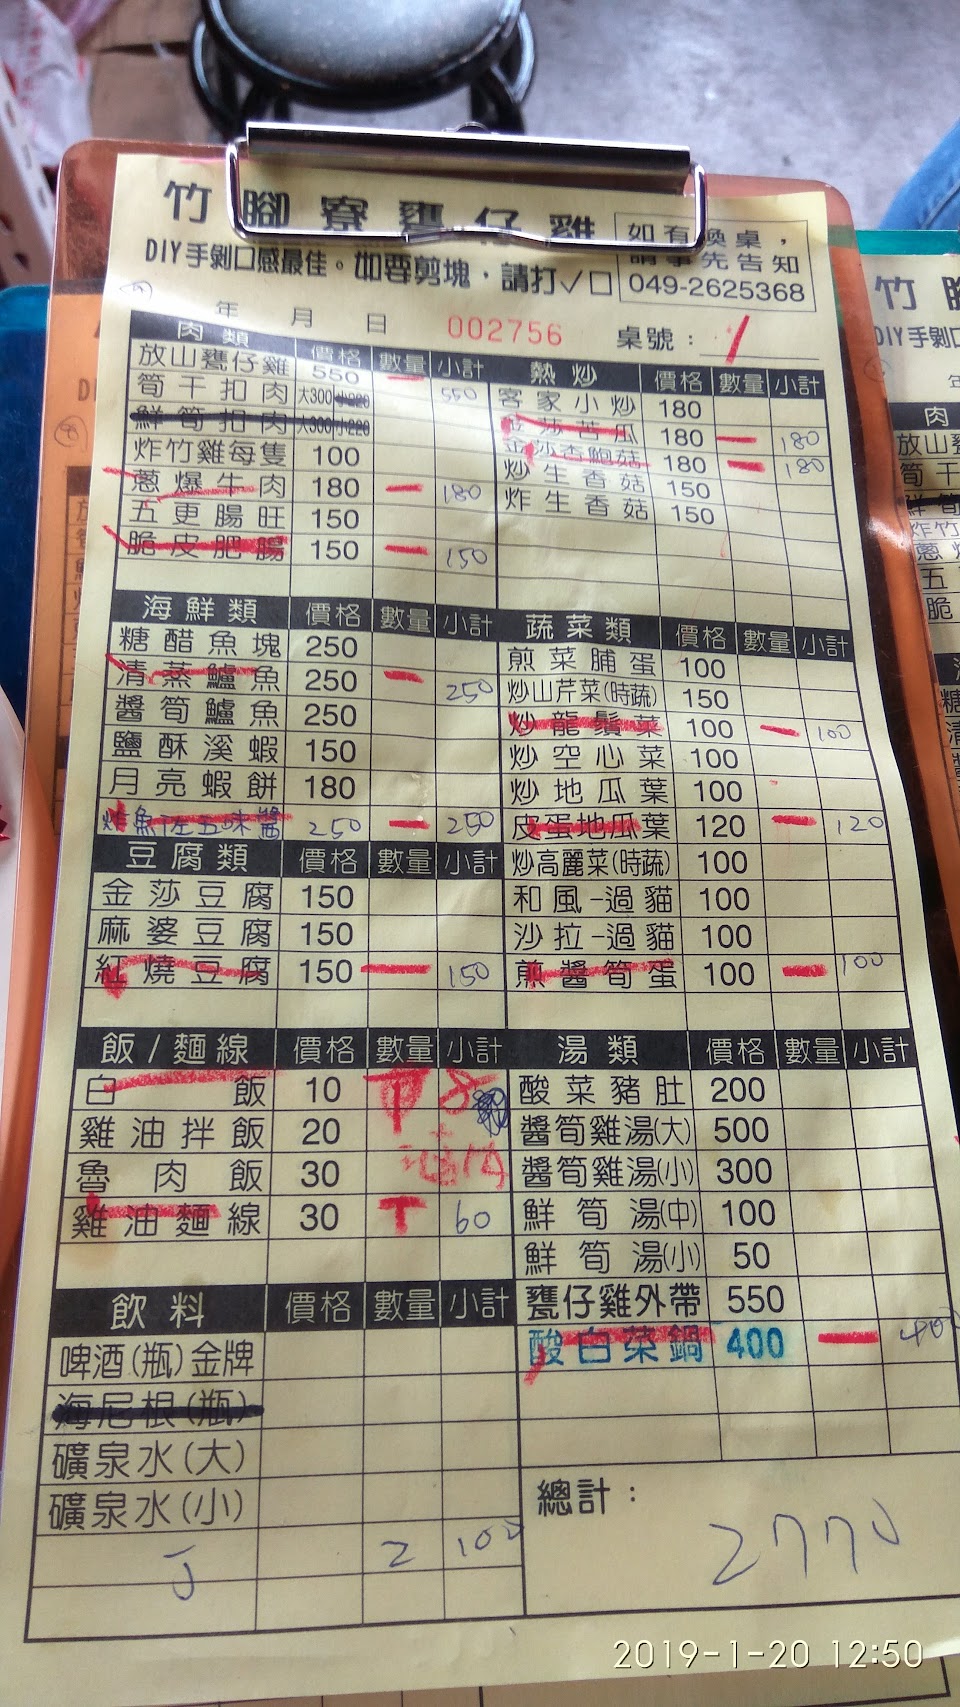 竹腳寮甕仔雞
DIY手剝口感最佳。如要剪塊，請打✓□
如有換桌，
請事先告知
049-2625368
年 月 日 002756 桌號：1
肉類 價格 數量 小計
放山甕仔雞 550 一 550
筍干扣肉 大300 小220
鮮筍扣肉 大300 小220
炸竹雞每隻 100
蔥爆牛肉 180 一 180
五更腸旺 150
脆皮肥腸 150 一 150
熱炒 價格 數量 小計
客家小炒 180
金沙苦瓜 180 一 180
金莎杏鮑菇 180 一 180
炒生香菇 150
炸生香菇 150
海鮮類 價格 數量 小計
糖醋魚塊 250
清蒸鱸魚 250 一 250
醬筍鱸魚 250
鹽酥溪蝦 150
月亮蝦餅 180
炸魚佐五味醬 250 一 250
蔬菜類 價格 數量 小計
煎菜脯蛋 100
炒山芹菜(時蔬) 150
炒龍鬚菜 100 一 100
炒空心菜 100
炒地瓜葉 100
皮蛋地瓜葉 120 一 120
炒高麗菜(時蔬) 100
和風-過貓 100
沙拉-過貓 100
煎醬筍蛋 100 一 100
豆腐類 價格 數量 小計
金莎豆腐 150
麻婆豆腐 150
紅燒豆腐 150 一 150
飯/麵線 價格 數量 小計
白飯 10
雞油拌飯 20
魯肉飯 30
雞油麵線 30 T 60
湯類 價格 數量 小計
酸菜豬肚 200
醬筍雞湯(大) 500
醬筍雞湯(小) 300
鮮筍湯(中) 100
鮮筍湯(小) 50
甕仔雞外帶 550
酸白菜鍋 400 一 400
飲料 價格 數量 小計
啤酒(瓶)金牌
海尼根(瓶)
礦泉水(大)
礦泉水(小)
J 2 100
總計：
2770
竹腳
DIY手剝口
肉
放山甕
筍干
2019-1-20 12:50